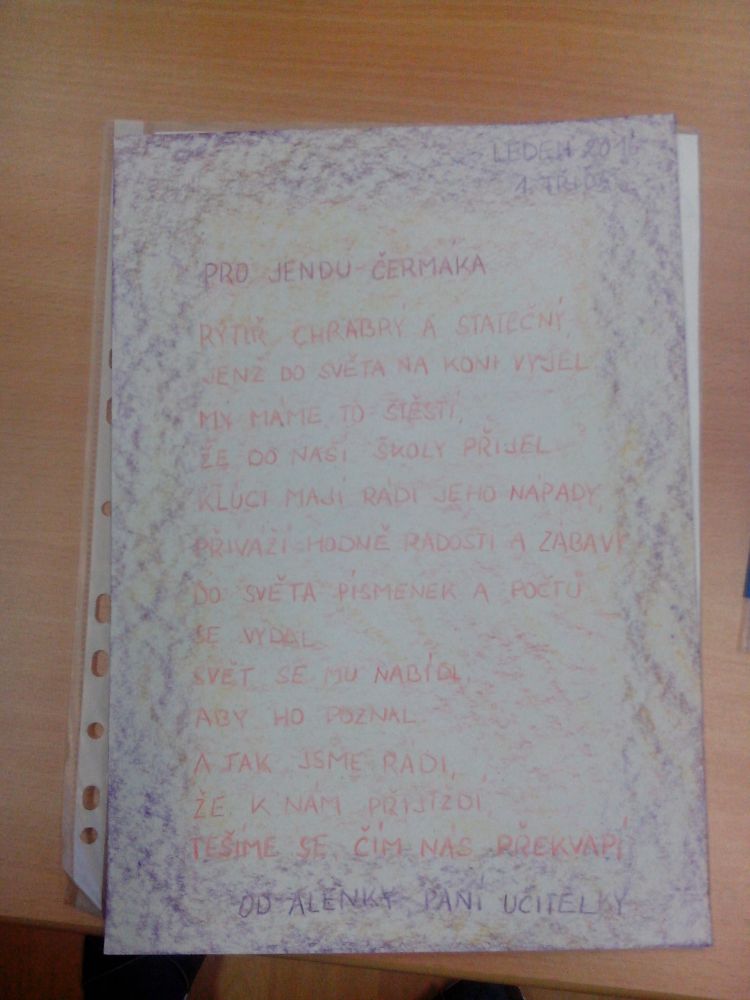 LEDEN 201
1. TŘÍDA
PRO JENDU ČERMÁKA
RYTÍŘ CHRABRÝ A STATEČNÝ,
JENŽ DO SVĚTA NA KONI VYJEL
MY MÁME TO ŠTĚSTÍ,
ŽE DO NAŠÍ ŠKOLY PŘIJEL
KLUCI MAJÍ RÁDI JEHO NÁPADY,
PŘIVÁŽÍ HODNĚ RADOSTI A ZÁBAVY
DO SVĚTA PÍSMENEK A POČTŮ
SE VYDAL.
SVĚT SE MU NABÍDL,
ABY HO POZNAL.
A TAK JSME RÁDI,
ŽE K NÁM PŘIJÍŽDÍ,
TĚŠÍME SE, ČÍM NÁS PŘEKVAPÍ
OD ALENKY PANÍ UČITELKY